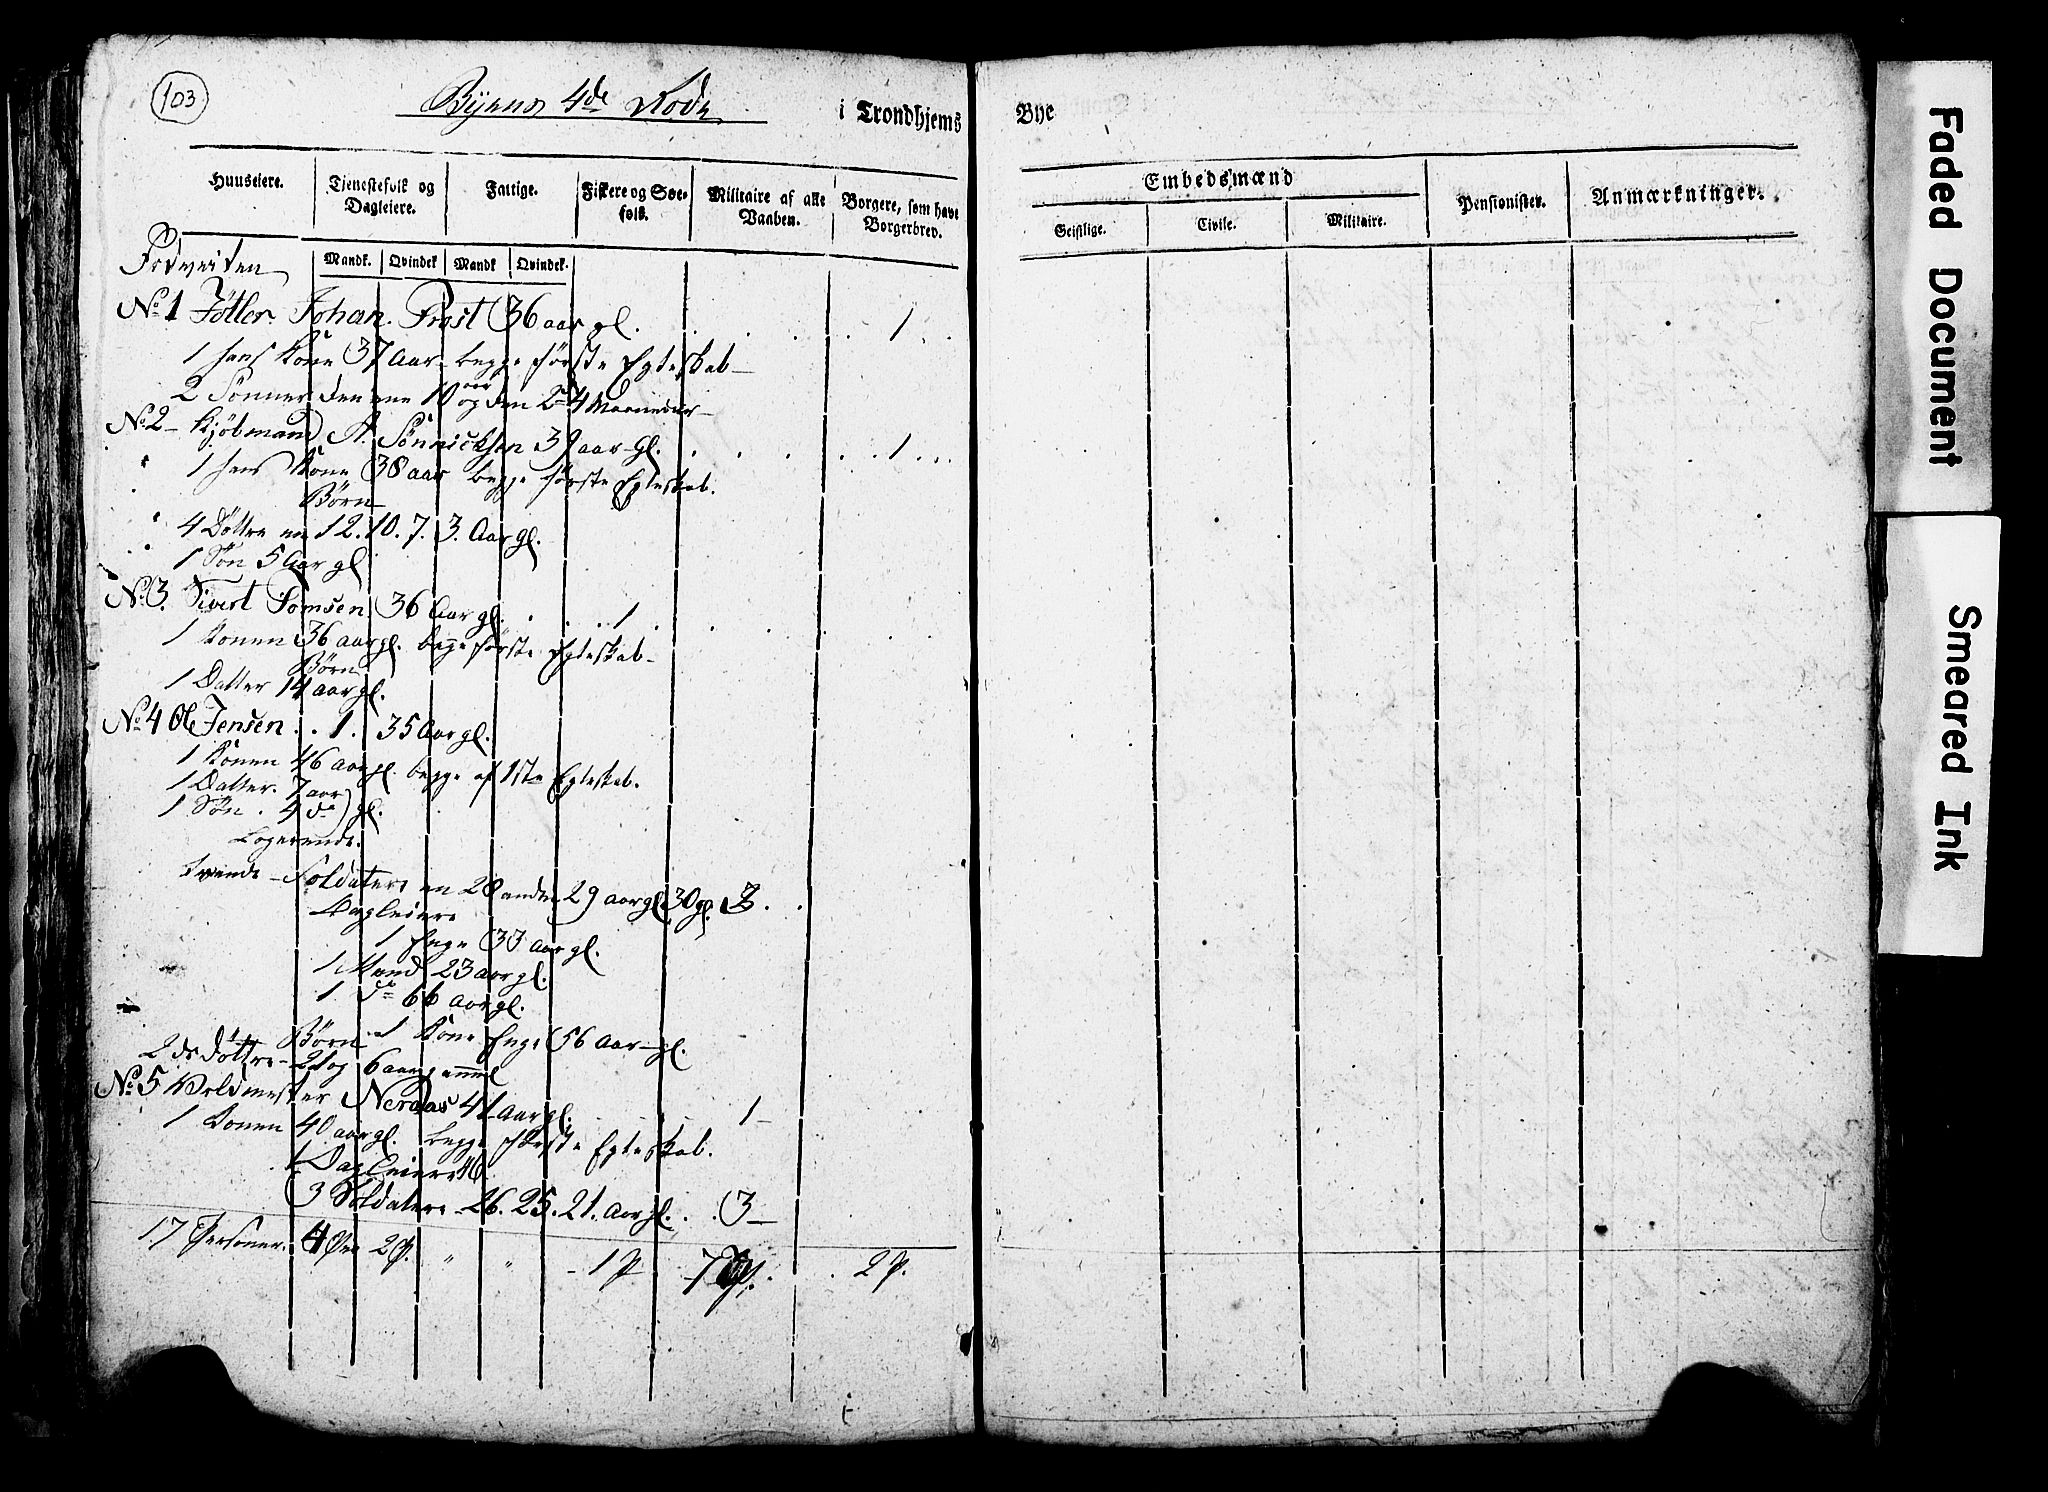 103
Byens 4de Rode i Trondhjems Bye
Huuseiere. Tjenestefolk og Dagleiere. Fattige. Fiskere og Søefolk. Militaire af alle Vaaben. Borgere, som have Borgerbrev. Embedsmænd Pensionister. Anmærkninger.
Geistlige. Civile. Militaire.
Mandk. Qvindek Mandk Qvindek.
No. 1 Johan Frost 36 aar gl. 1
1 hans Kone 37 Aar begge første Egteskab
2 Sønner den ene 10 aar og den 2d 4 Maaneder
No. 2 Kjøbmand A. Sønnichsen 39 aar gl. 1
1 hans Kone 38 aar begge første Egteskab.
Børn
4 Døttre en 12. 10. 7. 3. Aar gl.
1 Søn 5 Aar gl
No. 3. Sivert Tomsen 36 Aar gl. 1
1 Konen 36 aar gl. begge første Egteskab
Børn
1 Datter 14 aar gl.
No. 4 Ole Jensen . . 1. 35 Aar gl.
1 Konen 46 aar gl. begge af 1ste Egteskab.
1 Datter. 7 aar
1 Søn . 4 do gl.
Logerende.
Soldater en 28 anden 29 aar gl. 30 gl. 3
Dagleiere
1 Enge 33 Aar gl.
1 Mand 23 aar gl.
1 do 66 aar gl.
Børn 1 Kone Enge 56 Aar gl.
2 do Døttre 21 og 6 aar gammel
No. 5 Voldmester Nerdas 41 Aar gl. 1
1 Konen 40 aar gl. begge første Egteskab.
1 Dagleiere 46
3 Soldatere 26. 25. 21. Aar gl. 3
17 Personer. 4 2 P. " " 1 P 7 P. 2 P.
Faded Document
Smeared Ink